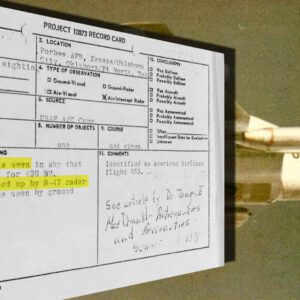 PROJECT 10073 RECORD CARD
2. LOCATION
Forbes AFB, Kansas/Oklahoma
City, Oklahom/Ft Worth, Tex
12. CONCLUSIONS
Was Balloon
Probably Balloon
Possibly Balloon
Was Aircraft
Probably Aircraft
Possibly Aircraft
Was Astronomical
Probably Astronomical
Possibly Astronomical
Other
Insufficient Data for Evaluation
Unknown
sighting
4. TYPE OF OBSERVATION
Ground-Visual
Ground-Radar
Air-Visual
Air-Intercept Radar
6. SOURCE
USAF A/C Crew
8. NUMBER OF OBJECTS
one
9. COURSE
not given
11. COMMENTS
identified as American Airlines
flight
seen in sky that
for 420 NM.
ed up by B-47 radar
be seen by ground
See article by Dr James E
McDonald - Astronautics
and Aeronautics
1971